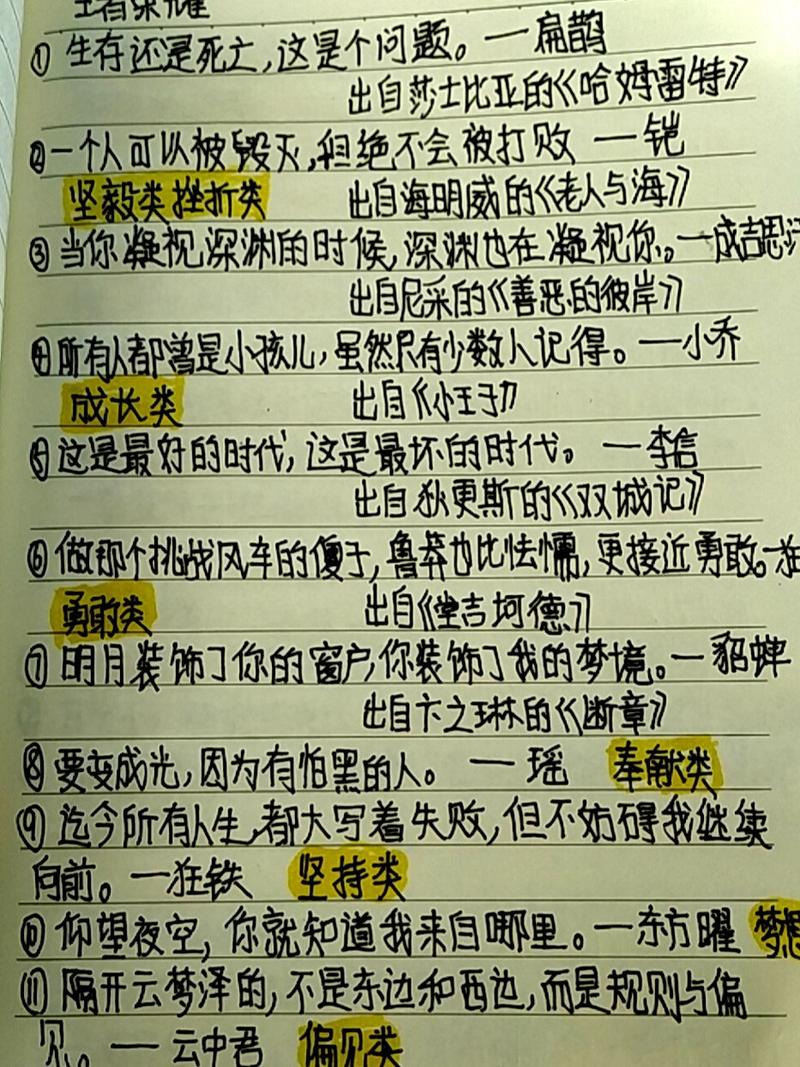 王者荣耀
①生存还是死亡,这是个问题。一扁鹊
出自莎士比亚的《哈姆雷特》
②一个人可以被毁灭,但绝不会被打败 一铠
坚毅类挫折类 出自海明威的《老人与海》
③当你凝视深渊的时候,深渊也在凝视你。一成吉思汗
出自尼采的《善恶的彼岸》
④所有人都曾是小孩儿,虽然只有少数人记得。一小乔
成长类 出自《小王子》
⑤这是最好的时代,这是最坏的时代。一李信
出自狄更斯的《双城记》
⑥做那个挑战风车的傻子,鲁莽也比怯懦,更接近勇敢。一狂
勇敢类 出自《堂吉坷德》
⑦明月装饰了你的窗户,你装饰了我的梦境。一貂蝉
出自卞之琳的《断章》
⑧要变成光,因为有怕黑的人。一瑶 奉献类
⑨迄今所有人生,都大写着失败,但不妨碍我继续
向前。一狂铁 坚持类
⑩仰望夜空,你就知道我来自哪里。一东方曜 梦想
⑪隔开云梦泽的,不是东边和西边,而是规则与偏
见。一云中君 偏见类